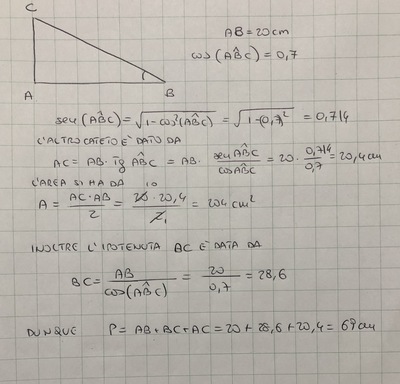 C
AB = 20 cm
cos (AB̂C) = 0,7
A B
sen (AB̂C) = √(1 - cos²(AB̂C)) = √(1 - (0,7)²) = 0,714
L'ALTRO CATETO È DATO DA
AC = AB · tg AB̂C = AB · sen AB̂C / cos AB̂C = 20 · 0,714 / 0,7 = 20,4 cm
L'AREA SI HA DA
A = AC · AB / 2 = 20 10 · 20,4 / 2 1 = 204 cm²
INOLTRE L'IPOTENUTA BC È DATA DA
BC = AB / cos (AB̂C) = 20 / 0,7 = 28,6
DUNQUE P = AB + BC + AC = 20 + 28,6 + 20,4 = 69 cm